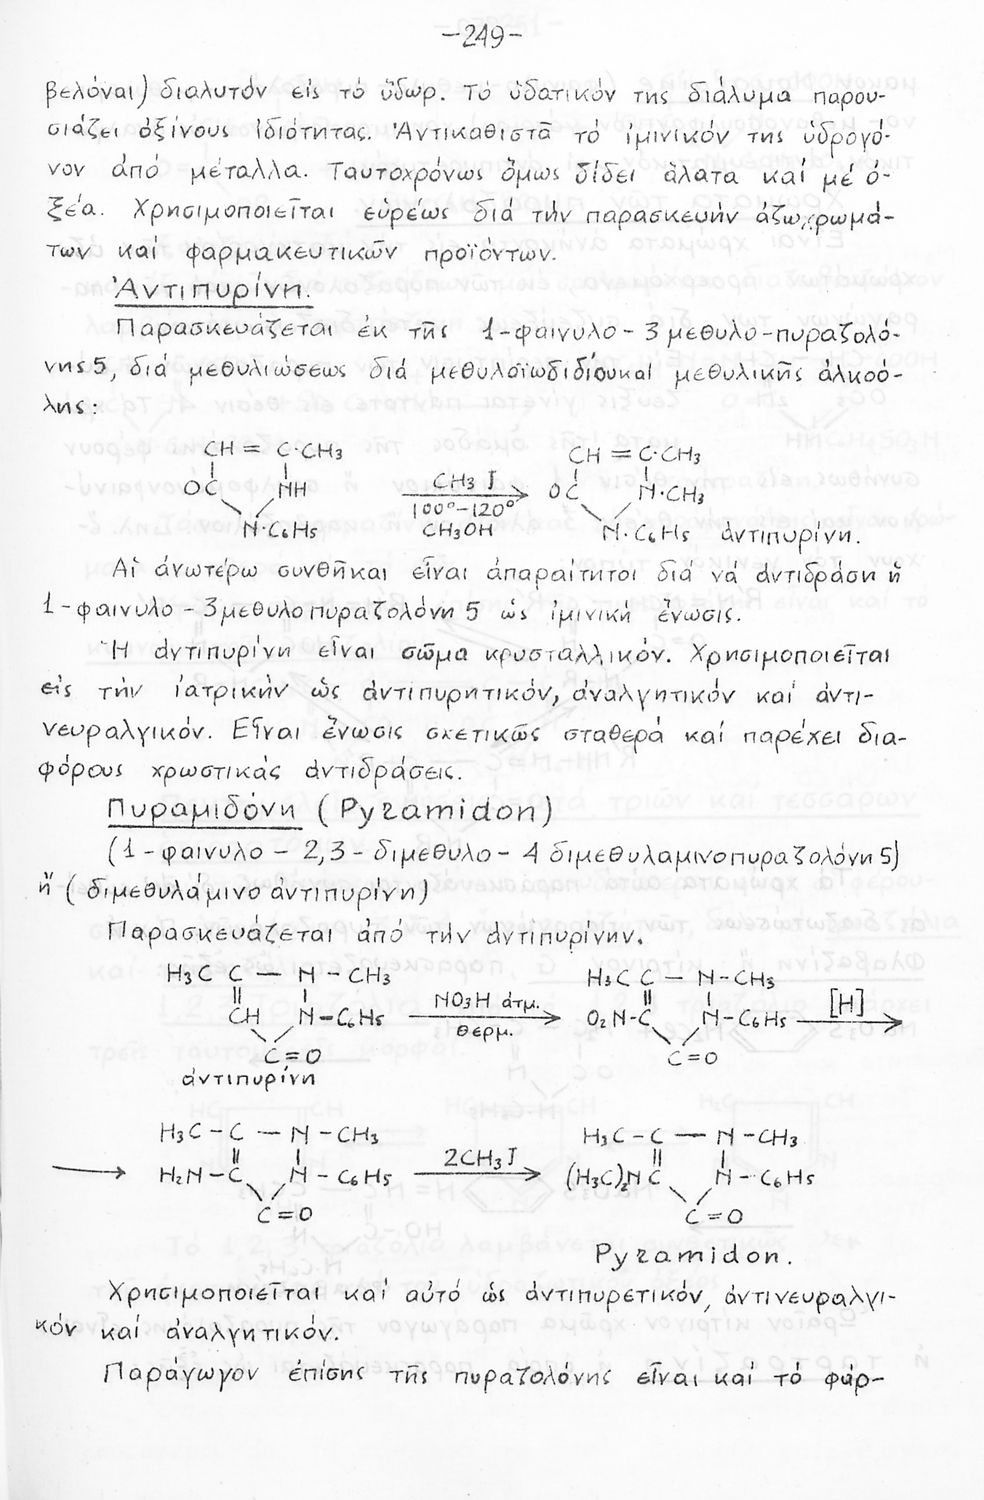 -249-
βελόναι) διαλυτόν εἰς τό ὕδωρ. Τό ὑδατικόν της διάλυμα παρου-
σιάζει ὀξίνους ἰδιότητας. Ἀντικαθιστᾶ τό ἰμινικόν της ὑδρογό-
νον ἀπό μέταλλα. Ταυτοχρόνως ὅμως δίδει ἅλατα καί μέ ὀ-
ξέα. Χρησιμοποιεῖται εὐρέως διά τήν παρασκευήν ἀζωχρωμά-
των καί φαρμακευτικῶν προϊόντων.
Ἀντιπυρίνη.
Παρασκευάζεται ἐκ τῆς 1-φαινυλο-3 μεθυλο-πυραζολό-
νης 5, διά μεθυλιώσεως διά μεθυλοϊωδιδίου καί μεθυλικῆς ἀλκοό-
λης:
CH = C·CH3 CH = C·CH3
OC NH CH3J OC N·CH3
100°-120°
N·C6H5 CH3OH N·C6H5 ἀντιπυρίνη.
Αἱ ἀνωτέρω συνθῆκαι εἶναι ἀπαραίτητοι διά νά ἀντιδράση ἡ
1-φαινυλο-3 μεθυλο πυραζολόνη 5 ὡς ἰμινική ἕνωσις.
Ἡ ἀντιπυρίνη εἶναι σῶμα κρυσταλλικόν. Χρησιμοποιεῖται
εἰς τήν ἰατρικήν ὡς ἀντιπυρητικόν, ἀναλγητικόν καί ἀντι-
νευραλγικόν. Εἶναι ἕνωσις σχετικῶς σταθερά καί παρέχει δια-
φόρους χρωστικάς ἀντιδράσεις.
Πυραμιδόνη (Pyramidon)
(1-φαινυλο - 2,3-διμεθυλο - 4 διμεθυλαμινοπυραζολόνη 5)
ἤ (διμεθυλάμινο ἀντιπυρίνη)
Παρασκευάζεται ἀπό τήν ἀντιπυρίνην.
H3C C — N - CH3 H3C C — N-CH3
CH N-C6H5 NO3H ἀτμ. O2N-C N-C6H5 [H]
θερμ.
C=O C=O
ἀντιπυρίνη
H3C - C — N - CH3 H3C - C — N -CH3
H2N - C N - C6H5 2CH3J (H3C)2N C N - C6H5
C=O C=O
Pyramidon.
Χρησιμοποιεῖται καί αὐτό ὡς ἀντιπυρετικόν, ἀντινευραλγι-
κόν καί ἀναλγητικόν.
Παράγωγον ἐπίσης τῆς πυραζολόνης εἶναι καί τό φάρ-